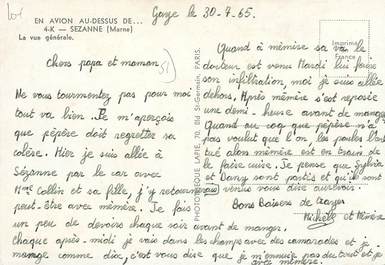 EN AVION AU-DESSUS DE...
4-K — SEZANNE (Marne)
La vue générale.
Gaye le 30-7-65.
Imprimé
France
51
PHOTOTHEQUE LAPIE, Bld St-Germain PARIS.
Chers papa et maman
Ne vous tourmentez pas pour moi
tout va bien. Je m'aperçois
que pépère doit regretter sa
colère. Hier je suis allée à
Sézanne par le car avec
Mme Collin et sa fille, j'y retournerai
peut-être avec mémère. Je fais
un peu de devoirs chaque soir
chaque après-midi je vais dans les champs avec des camarades et je
mange comme dix, c'est vous dire que je m'ennuie pas du tout et je
Quand à mémère sa va le
docteur est venu Mardi lui faire
son infiltration moi je suis allée
dehors. Après mémère s'est reposée
une demi-heure avant de manger
Quand au coq que pépère n'a
pas voulut que l'on
alors mémère est en train de
le faire cuire. Je pense que Sylvie
et Dany sont partis et qu'ils sont
venus vous dire aurevoir.
Bons Baisers de Gaye
Michèle et Mémère
avant de manger.
avec mémère.